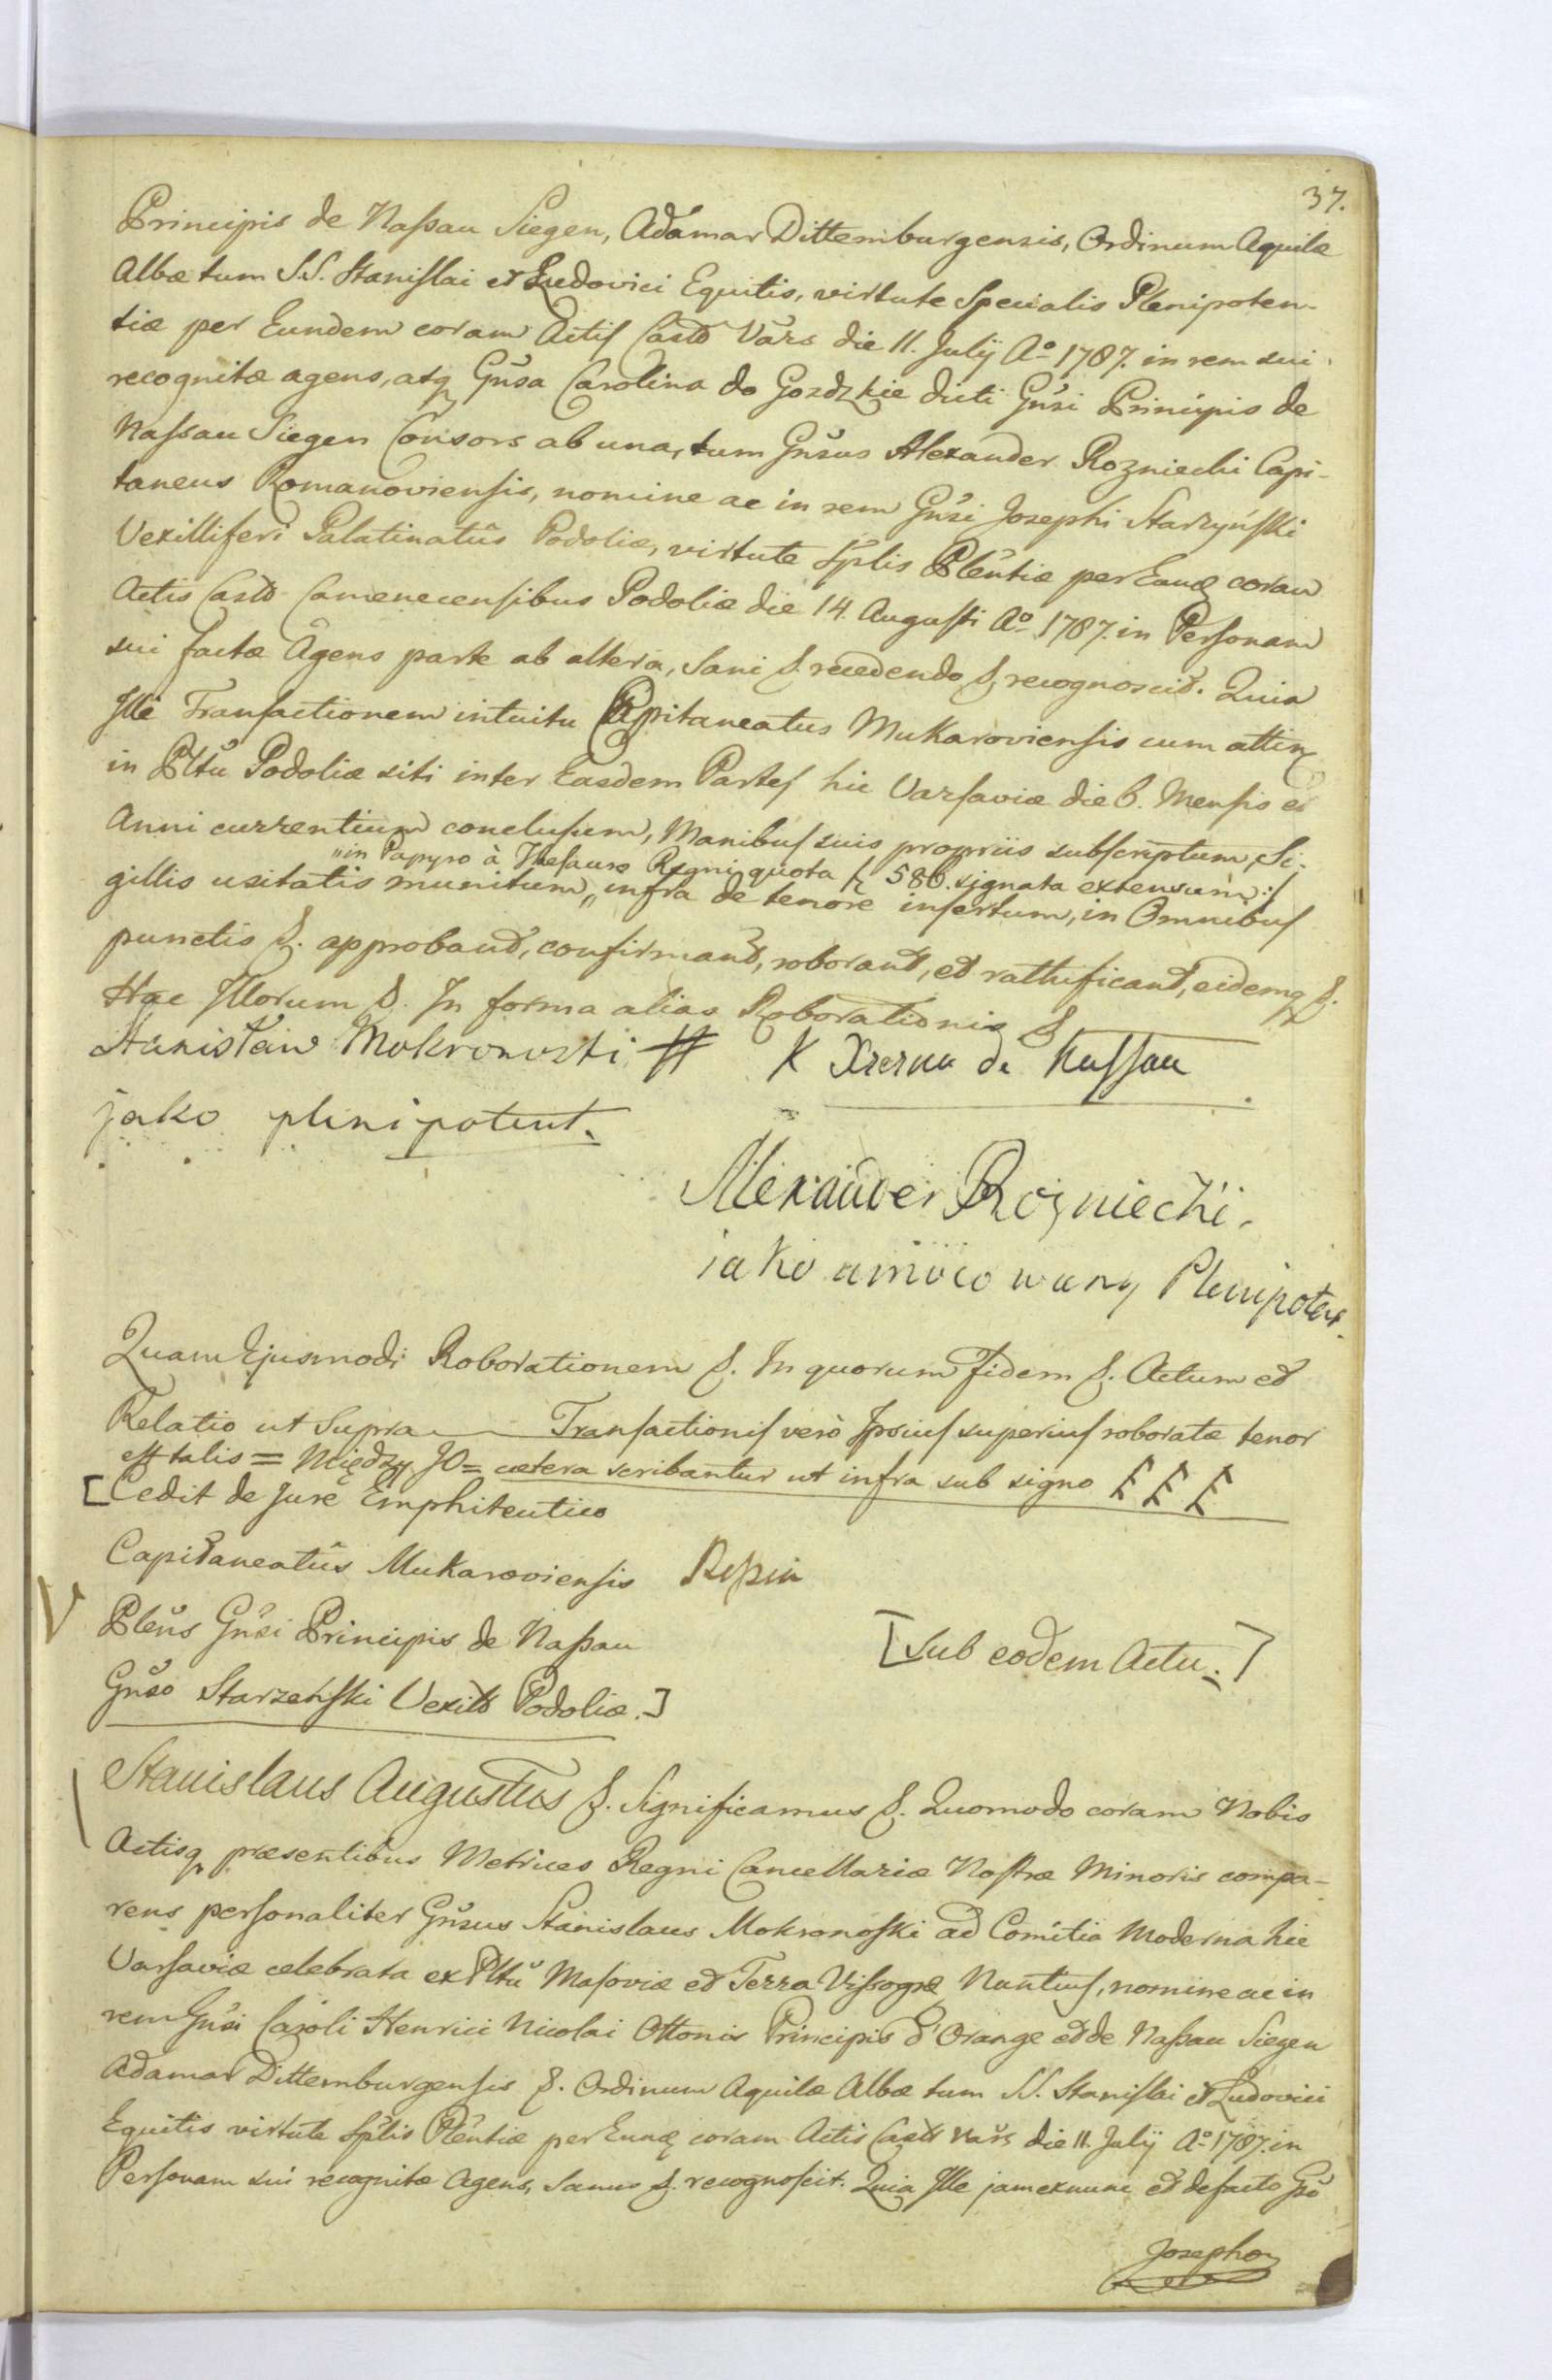 37.
Principis de Naſsau Siegen, Adamar Dittemburgensis, Ordinum Aquilæ
Albæ tum S.S. Staniſlai et Ludovici Equitis, virtute Specialis Plenipoten-
tiæ per Eundem coram Actiſ Castr Vars die 11. Julÿ Aº 1787. in rem sui
recognitæ agens, atq Gnsa Carolina de Gozdzkie dicti Gnsi Principis de
Naſsau Siegen Consors ab una, tum Gnsus Alexander Rozniecki Capi-
taneus Romanovienſis, nomine ac in rem Gnsi Josephi Starzyńſki
Vexilliferi Palatinatûs Podoliæ, virtute Splis Plentiæ per Eund coram
Actis Castr Camenecenſibus Podoliæ die 14. Auguſti Aº 1787. in Perſonam
sui factæ Agens parte ab altera, Sani &. recedendo &. recognoscit. Quia
Ille Tranſactionem intuitu Capitaneatus Mukarovienſis cum attin
in Pltu Podoliæ siti inter Easdem Parteſ hic Varſaviæ die 6. Menſis et
Anni currentium concluſum, Manibuſ suis propriis subſcriptum, Si-
„in Papyro à Theſauro Regni quota fl 586. signata extensum :/
gillis usitatis munitum „ infra de tenore inſertum, in Omnibuſ
punctis &. approbant, confirmant, roborant, et rathificant, eidemq &.
Hac Illorum &. In forma alias Roborationis &
Stanisław Mokronoski # K Xzezna de Naſsau
jako plenipotent.
Alexander Rożniecki.
iako umocowany Plenipotent.
Quam Ejusmodi Roborationem &. In quorum Fidem &. Actum et
Relatio ut Supra — Tranſactioniſ verò Ipsiuſ superiuſ roboratæ tenor
eſt talis = Między JO = cætera scribantur ut infra sub signo ƐƐƐ
[Cedit de Jure Emphiteutico
Capitaneatûs Mukarovienſis
Plens Gnsi Principis de Naſsau
Gnso Starzeńſki Vexill Podoliæ.]
[Sub eodem Actu.]
Stanislaus Augustus &. Significamus &. Quomodo coram Nobis
Actisq præsentibus Metrices Regni Cancellariæ Noſtræ Minoris compa-
rens perſonaliter Gnsus Stanislaus Mokronoſki ad Comitia Moderna hic
Varſaviæ celebrata ex Pltu Maſoviæ et Terra Viſsogræ Nuntiuſ, nomine ac in
rem Gnsi Caroli Henrici Nicolai Ottonis Principis d'Orange et de Naſsau Siegen
Adamar Dittemburgenſis &. Ordinum Aquilæ Albæ tum S.S. Staniſlai et Ludovici
Equitis virtute Splis Plentiæ per Eund coram Actis Castr Vars die 11. Julÿ Aº 1787. in
Perſonam sui recognitæ Agens, Sanus &. recognoſcit. Quia Ille jam exnunc et defacto Gso
Josepho